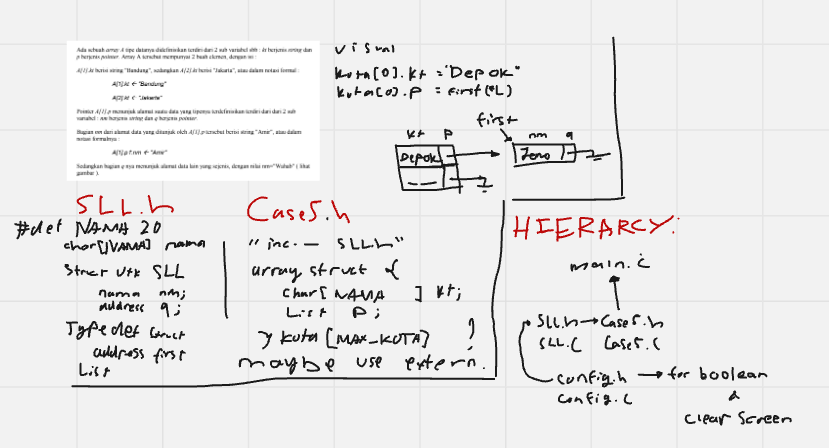 Ada sebuah array A tipe datanya didefinisikan terdiri dari 2 sub variabel sbb : kt berjenis string dan
p berjenis pointer. Array A tersebut mempunyai 2 buah elemen, dengan isi :
A[1].kt berisi string "Bandung", sedangkan A[2].kt berisi "Jakarta", atau dalam notasi formal :
A[1].kt ← "Bandung"
A[2].kt ← "Jakarta"
Pointer A[1].p menunjuk alamat suatu data yang tipenya terdefinisikan terdiri dari dari 2 sub
variabel : nm berjenis string dan q berjenis pointer.
Bagian nm dari alamat data yang ditunjuk oleh A[1].p tersebut berisi string "Amir", atau dalam
notasi formalnya :
A[1].p↑.nm ← "Amir"
Sedangkan bagian q-nya menunjuk alamat data lain yang sejenis, dengan nilai nm="Wahab" ( lihat
gambar ).
visual
kota[0].kt = "Depok"
kota[0].p = first(*L)
first
kt p
nm q
Depok
Zeno
SLL.h
#def NAMA 20
char[NAMA] nama
Struct utk SLL
nama nm;
address q;
Typedef struct
address first
List
Case5.h
"inc. — SLL.h"
array struct {
char[NAMA ] kt;
List p;
} kota [MAX_KOTA] ?
maybe use extern.
HIERARCY:
main.c
SLL.h → Case5.h
SLL.c Case5.c
config.h → for boolean
config.c &
clear screen